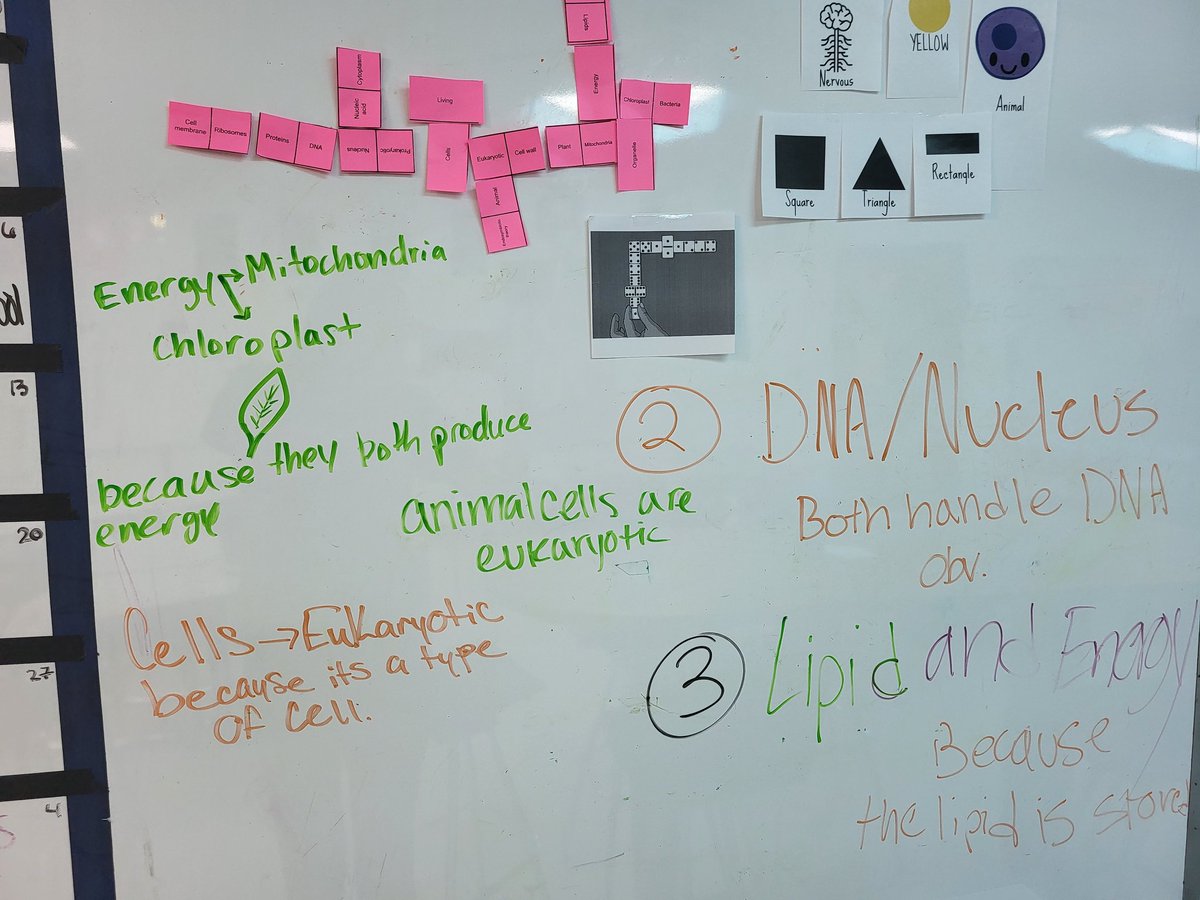 Lipids
Cytoplasm
Nucleic acid
Energy
Living
Chloroplast Bacteria
Cell membrane Ribosomes
Proteins DNA
Nucleus Prokaryotic
Cells
Eukaryotic Cell wall
Plant Mitochondria
Organelle
Animal
Endosymbiotic theory
Nervous
YELLOW
Animal
Square
Triangle
Rectangle
6
13
20
27
4
Energy → Mitochondria
Chloroplast
because they both produce
energy
animal cells are
eukaryotic
Cells → Eukaryotic
because its a type
of cell.
2 DNA/Nucleus
Both handle DNA
obv.
3 Lipid and Energy
Because
the lipid is stored